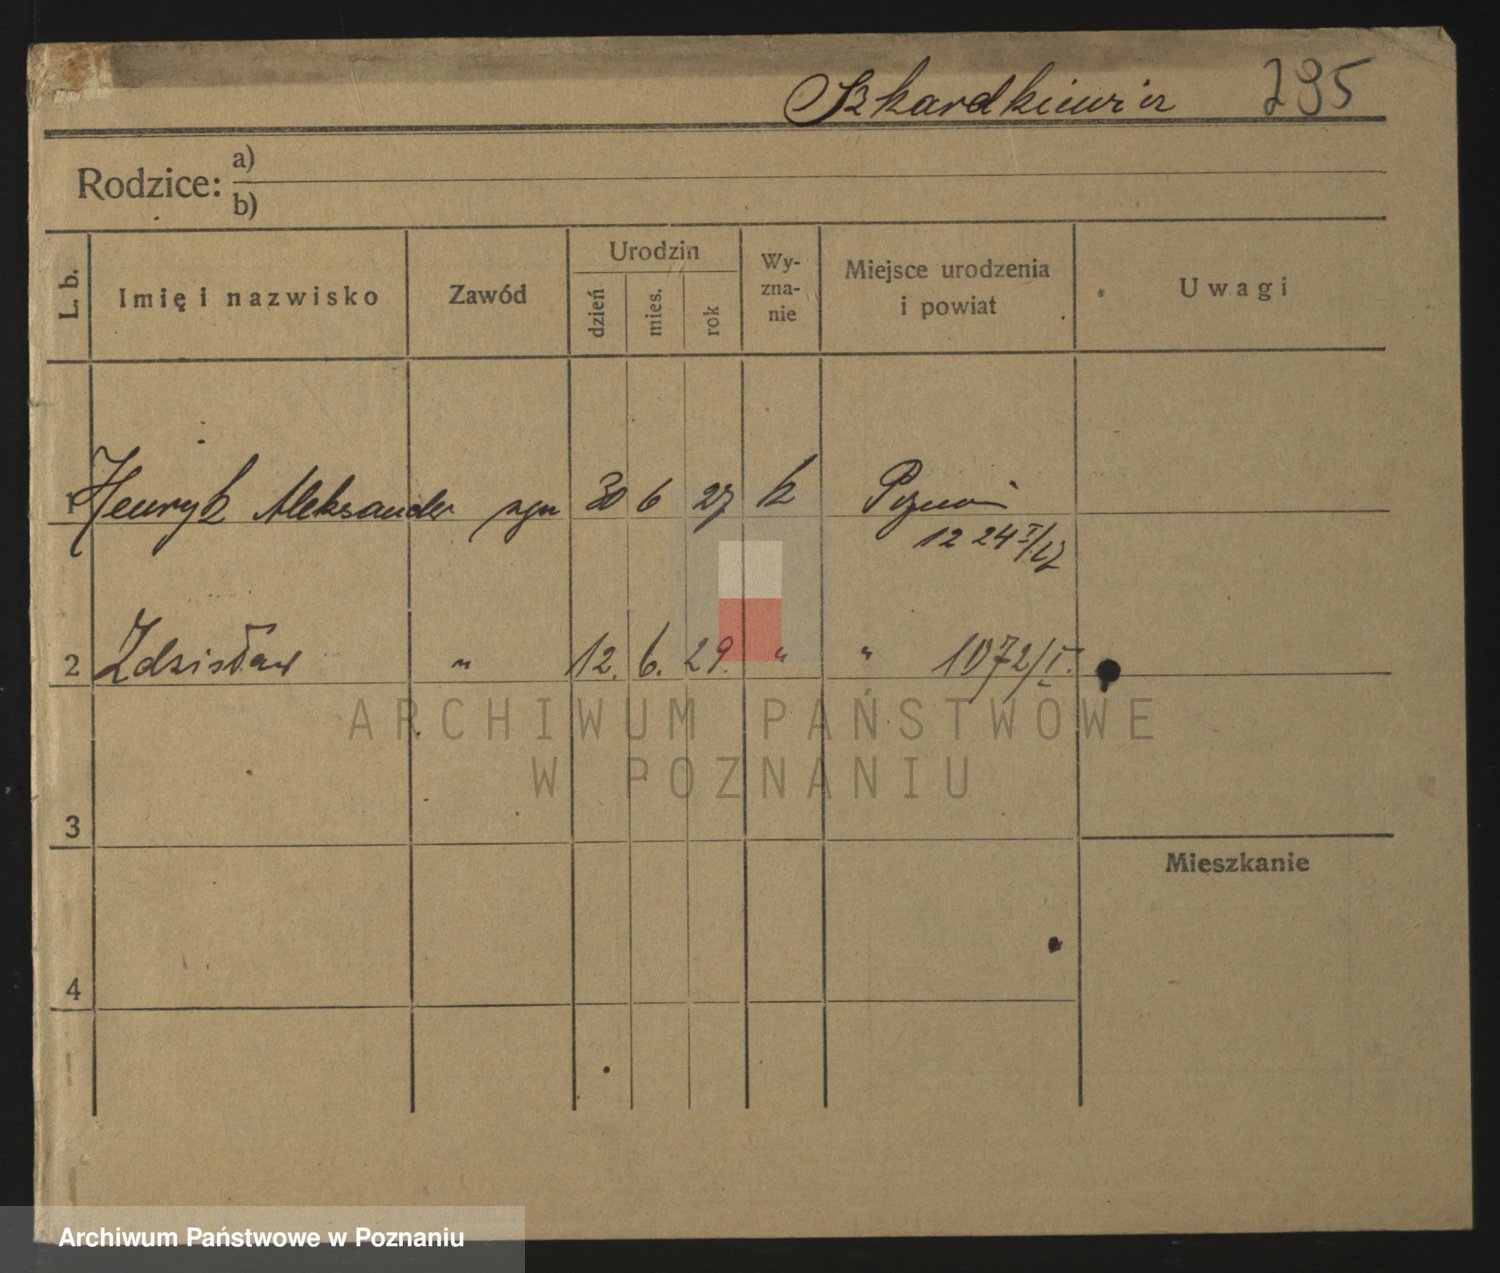 Szkardkiewicz 295
Rodzice: a)
b)
L. b.
Imię i nazwisko
Zawód
Urodzin
dzień
mies.
rok
Wy-
zna-
nie
Miejsce urodzenia
i powiat
Uwagi
1 Henryk Aleksander 30 6 27 k Poznań
12 24 I/27
2 Zdzisław " 12. 6. 29. " " 1072/I.
ARCHIWUM PAŃSTWOWE
W POZNANIU
3
Mieszkanie
4
Archiwum Państwowe w Poznaniu